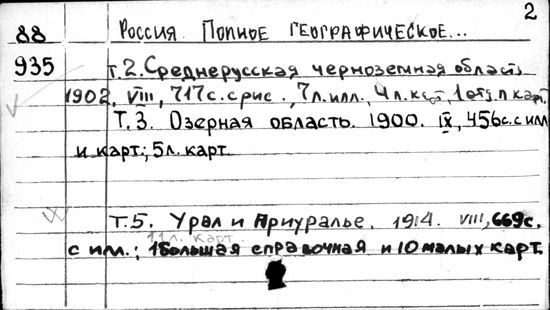 2
88 Россия. Полное географическое...
935 т.2. Среднерусская черноземная область
1902. VIII, 717с. с рис., 7л.илл., 4л.карт, 1отд.л карт.
Т.3. Озерная область. 1900. IX, 456с. с илл
и карт.; 5л. карт.
Т.5. Урал и Приуралье. 1914. VIII, 669с.
11л. карт.
с илл.; 1большая справочная и 10 малых карт.